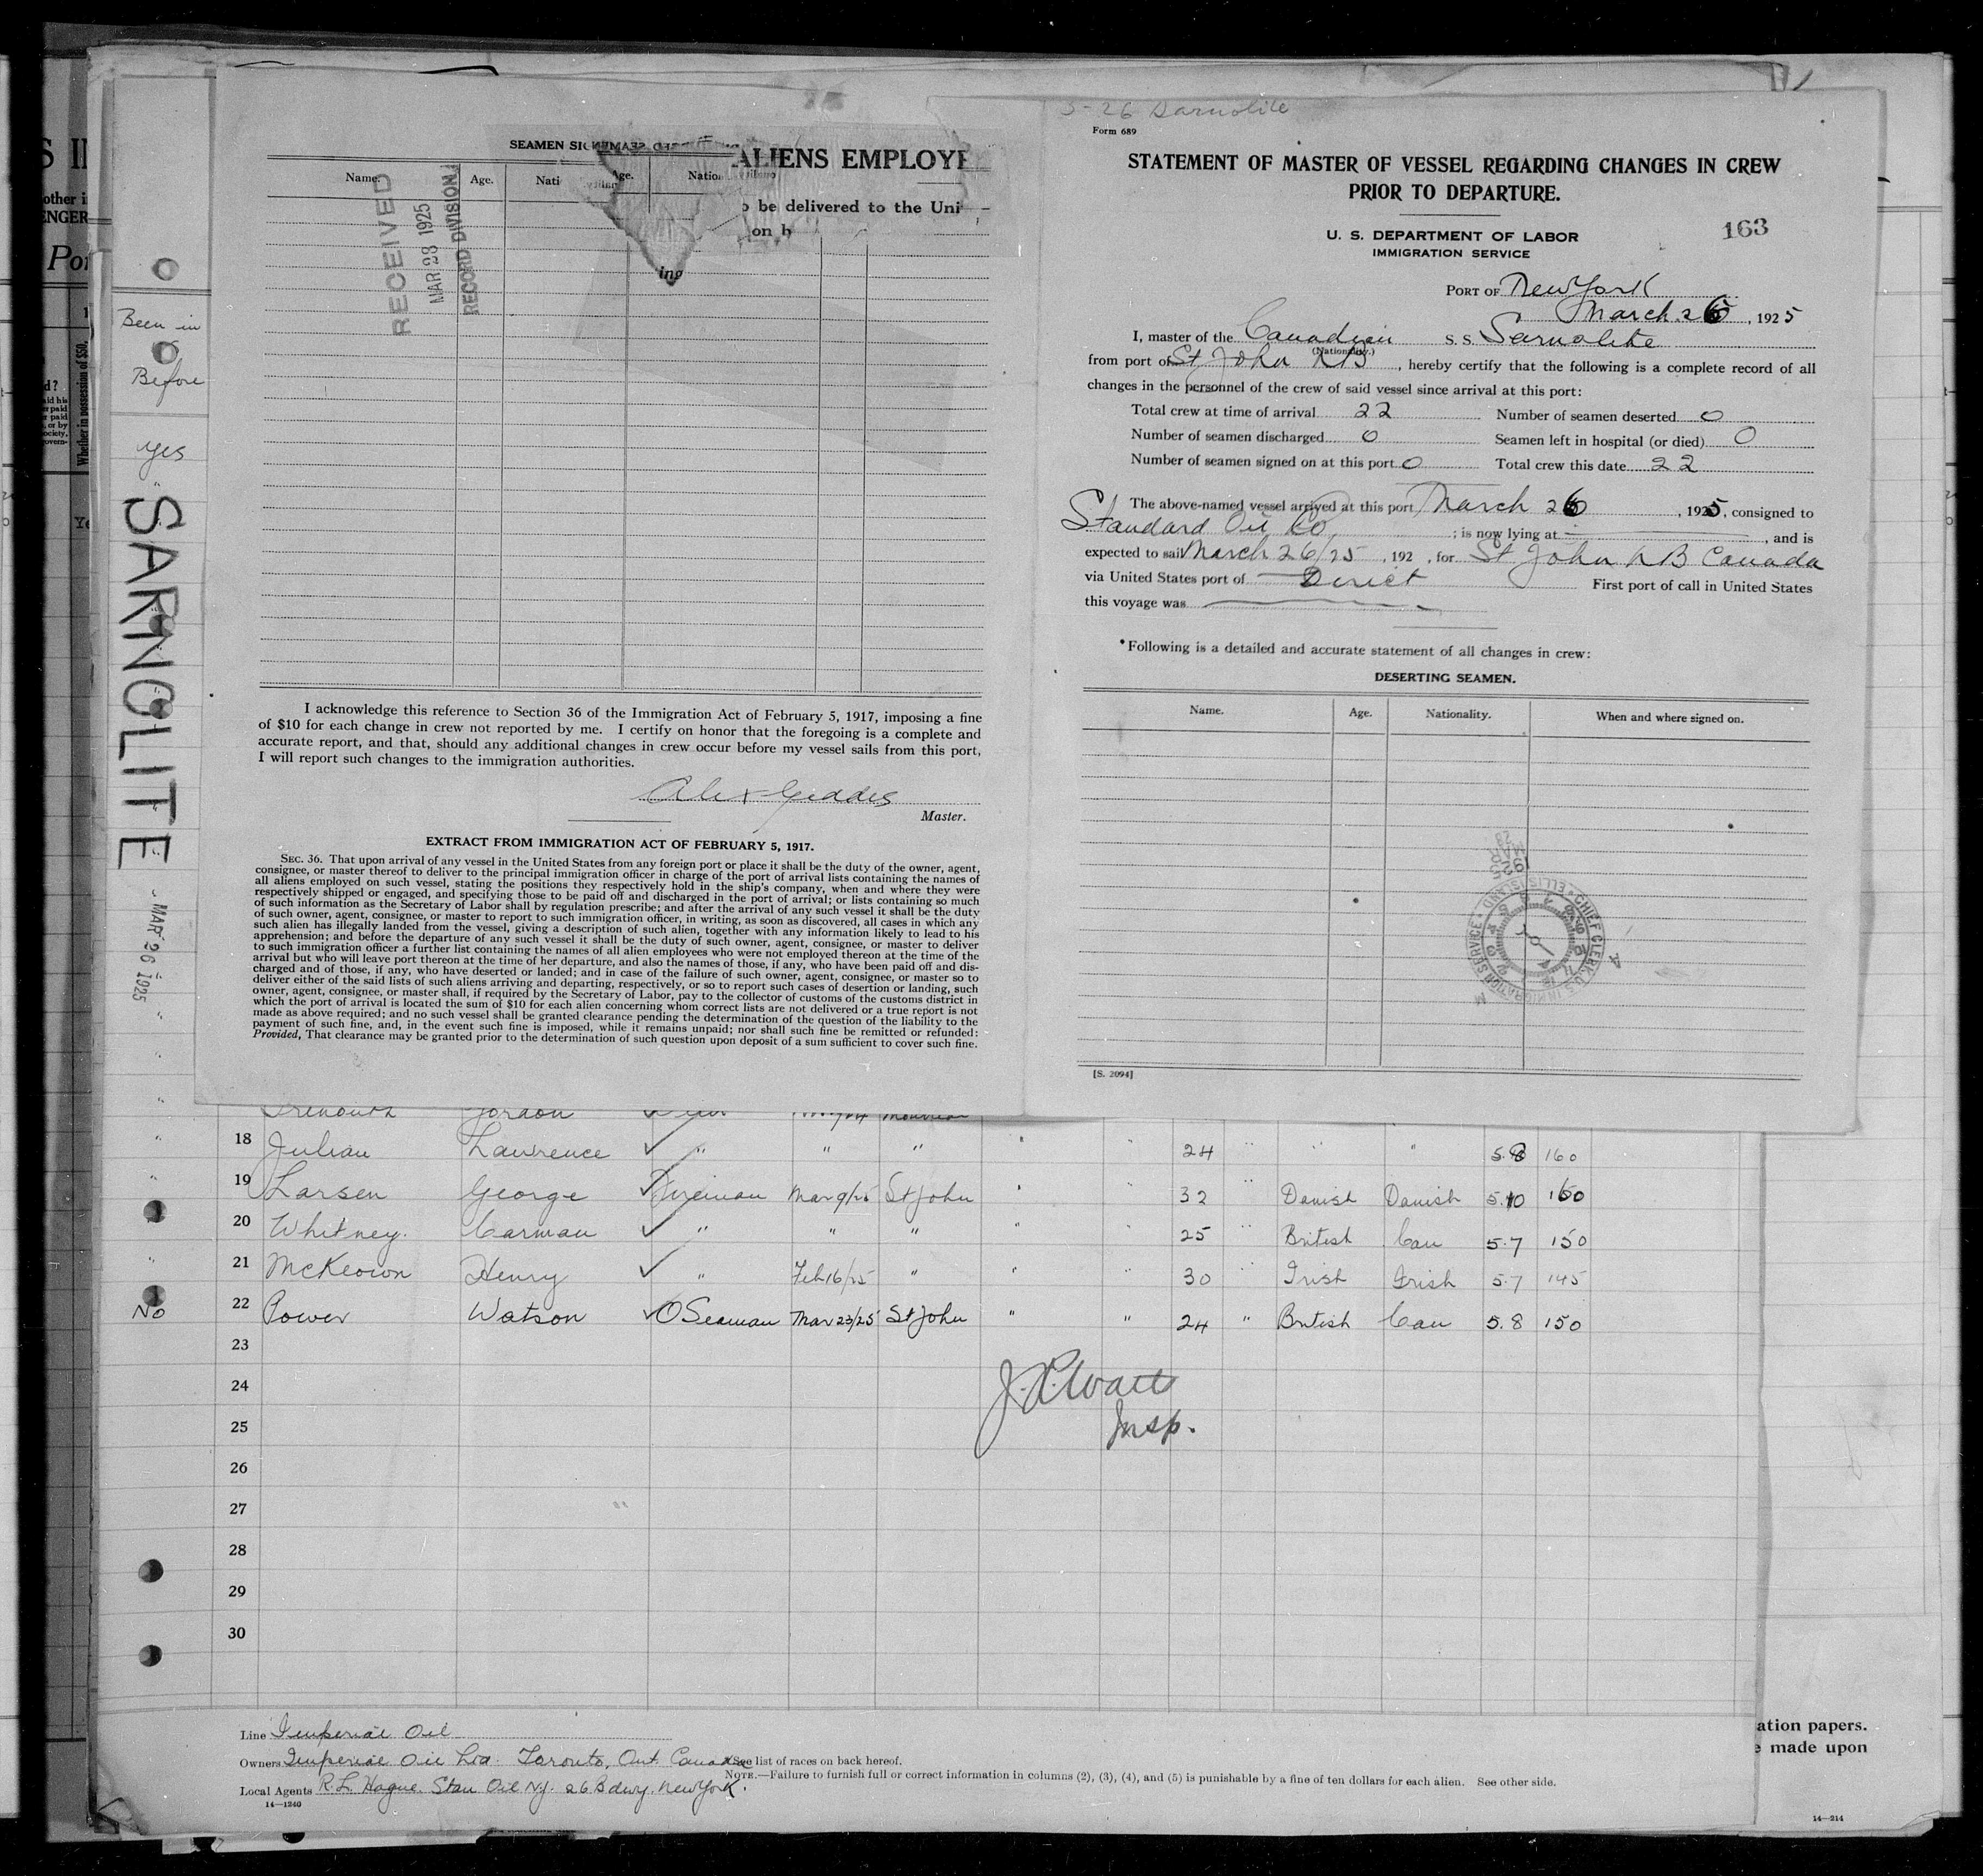 Been in
Before
yes
SARNOLITE
MAR 26 1925
No
SEAMEN SI
ALIENS EMPLOYE
Name.
Age.
Nati
Age.
Nation
be delivered to the Uni
on b
ing
RECEIVED
MAR 28 1925
RECORD DIVISION
I acknowledge this reference to Section 36 of the Immigration Act of February 5, 1917, imposing a fine
of $10 for each change in crew not reported by me. I certify on honor that the foregoing is a complete and
accurate report, and that, should any additional changes in crew occur before my vessel sails from this port,
I will report such changes to the immigration authorities.
Alex Geddes
Master.
EXTRACT FROM IMMIGRATION ACT OF FEBRUARY 5, 1917.
SEC. 36. That upon arrival of any vessel in the United States from any foreign port or place it shall be the duty of the owner, agent,
consignee, or master thereof to deliver to the principal immigration officer in charge of the port of arrival lists containing the names of
all aliens employed on such vessel, stating the positions they respectively hold in the ship's company, when and where they were
respectively shipped or engaged, and specifying those to be paid off and discharged in the port of arrival; or lists containing so much
of such information as the Secretary of Labor shall by regulation prescribe; and after the arrival of any such vessel it shall be the duty
of such owner, agent, consignee, or master to report to such immigration officer, in writing, as soon as discovered, all cases in which any
such alien has illegally landed from the vessel, giving a description of such alien, together with any information likely to lead to his
apprehension; and before the departure of any such vessel it shall be the duty of such owner, agent, consignee, or master to deliver
to such immigration officer a further list containing the names of all alien employees who were not employed thereon at the time of the
arrival but who will leave port thereon at the time of her departure, and also the names of those, if any, who have been paid off and dis-
charged and of those, if any, who have deserted or landed; and in case of the failure of such owner, agent, consignee, or master so to
deliver either of the said lists of such aliens arriving and departing, respectively, or so to report such cases of desertion or landing, such
owner, agent, consignee, or master shall, if required by the Secretary of Labor, pay to the collector of customs of the customs district in
which the port of arrival is located the sum of $10 for each alien concerning whom correct lists are not delivered or a true report is not
made as above required; and no such vessel shall be granted clearance pending the determination of the question of the liability to the
payment of such fine, and, in the event such fine is imposed, while it remains unpaid; nor shall such fine be remitted or refunded:
Provided, That clearance may be granted prior to the determination of such question upon deposit of a sum sufficient to cover such fine.
3-26 Sarnolite
Form 689
STATEMENT OF MASTER OF VESSEL REGARDING CHANGES IN CREW
PRIOR TO DEPARTURE.
U. S. DEPARTMENT OF LABOR
IMMIGRATION SERVICE
163
PORT OF New York
March 26, 1925
I, master of the Canadian S. S. Sarnolite
(Nationality.)
from port of St John NB, hereby certify that the following is a complete record of all
changes in the personnel of the crew of said vessel since arrival at this port:
Total crew at time of arrival 22 Number of seamen deserted 0
Number of seamen discharged 0 Seamen left in hospital (or died) 0
Number of seamen signed on at this port 0 Total crew this date 22
The above-named vessel arrived at this port March 26, 1925, consigned to
Standard Oil Co; is now lying at , and is
expected to sail March 26/25, 192 , for St John NB Canada
via United States port of Direct First port of call in United States
this voyage was
*Following is a detailed and accurate statement of all changes in crew:
DESERTING SEAMEN.
Name. Age. Nationality. When and where signed on.
1925
CHIEF CLERK U.S. IMMIGRATION SERVICE ELLIS ISLAND
[S. 2094]
Gordon
18 Julian Lawrence " " " " " 24 " " " 5.8 160
19 Larsen George Fireman Mar 9/25 St John " " 32 " Danish Danish 5.10 160
20 Whitney. Carman " " " " " 25 " British Can 5.7 150
21 McKeown Henry " Feb 16/25 " " " 30 " Irish Irish 5.7 145
22 Power Watson O Seaman Mar 23/25 St John " " 24 " British Can 5.8 150
23
24
25
26
27
28
29
30
Insp.
Line Imperial Oil
Owners Imperial Oil Ltd. Toronto, Ont. Canada
See list of races on back hereof.
NOTE.—Failure to furnish full or correct information in columns (2), (3), (4), and (5) is punishable by a fine of ten dollars for each alien. See other side.
Local Agents R.L. Hague Stan Oil N.J. 26 Bdwy. New York.
14—1240
ation papers.
made upon
14—214